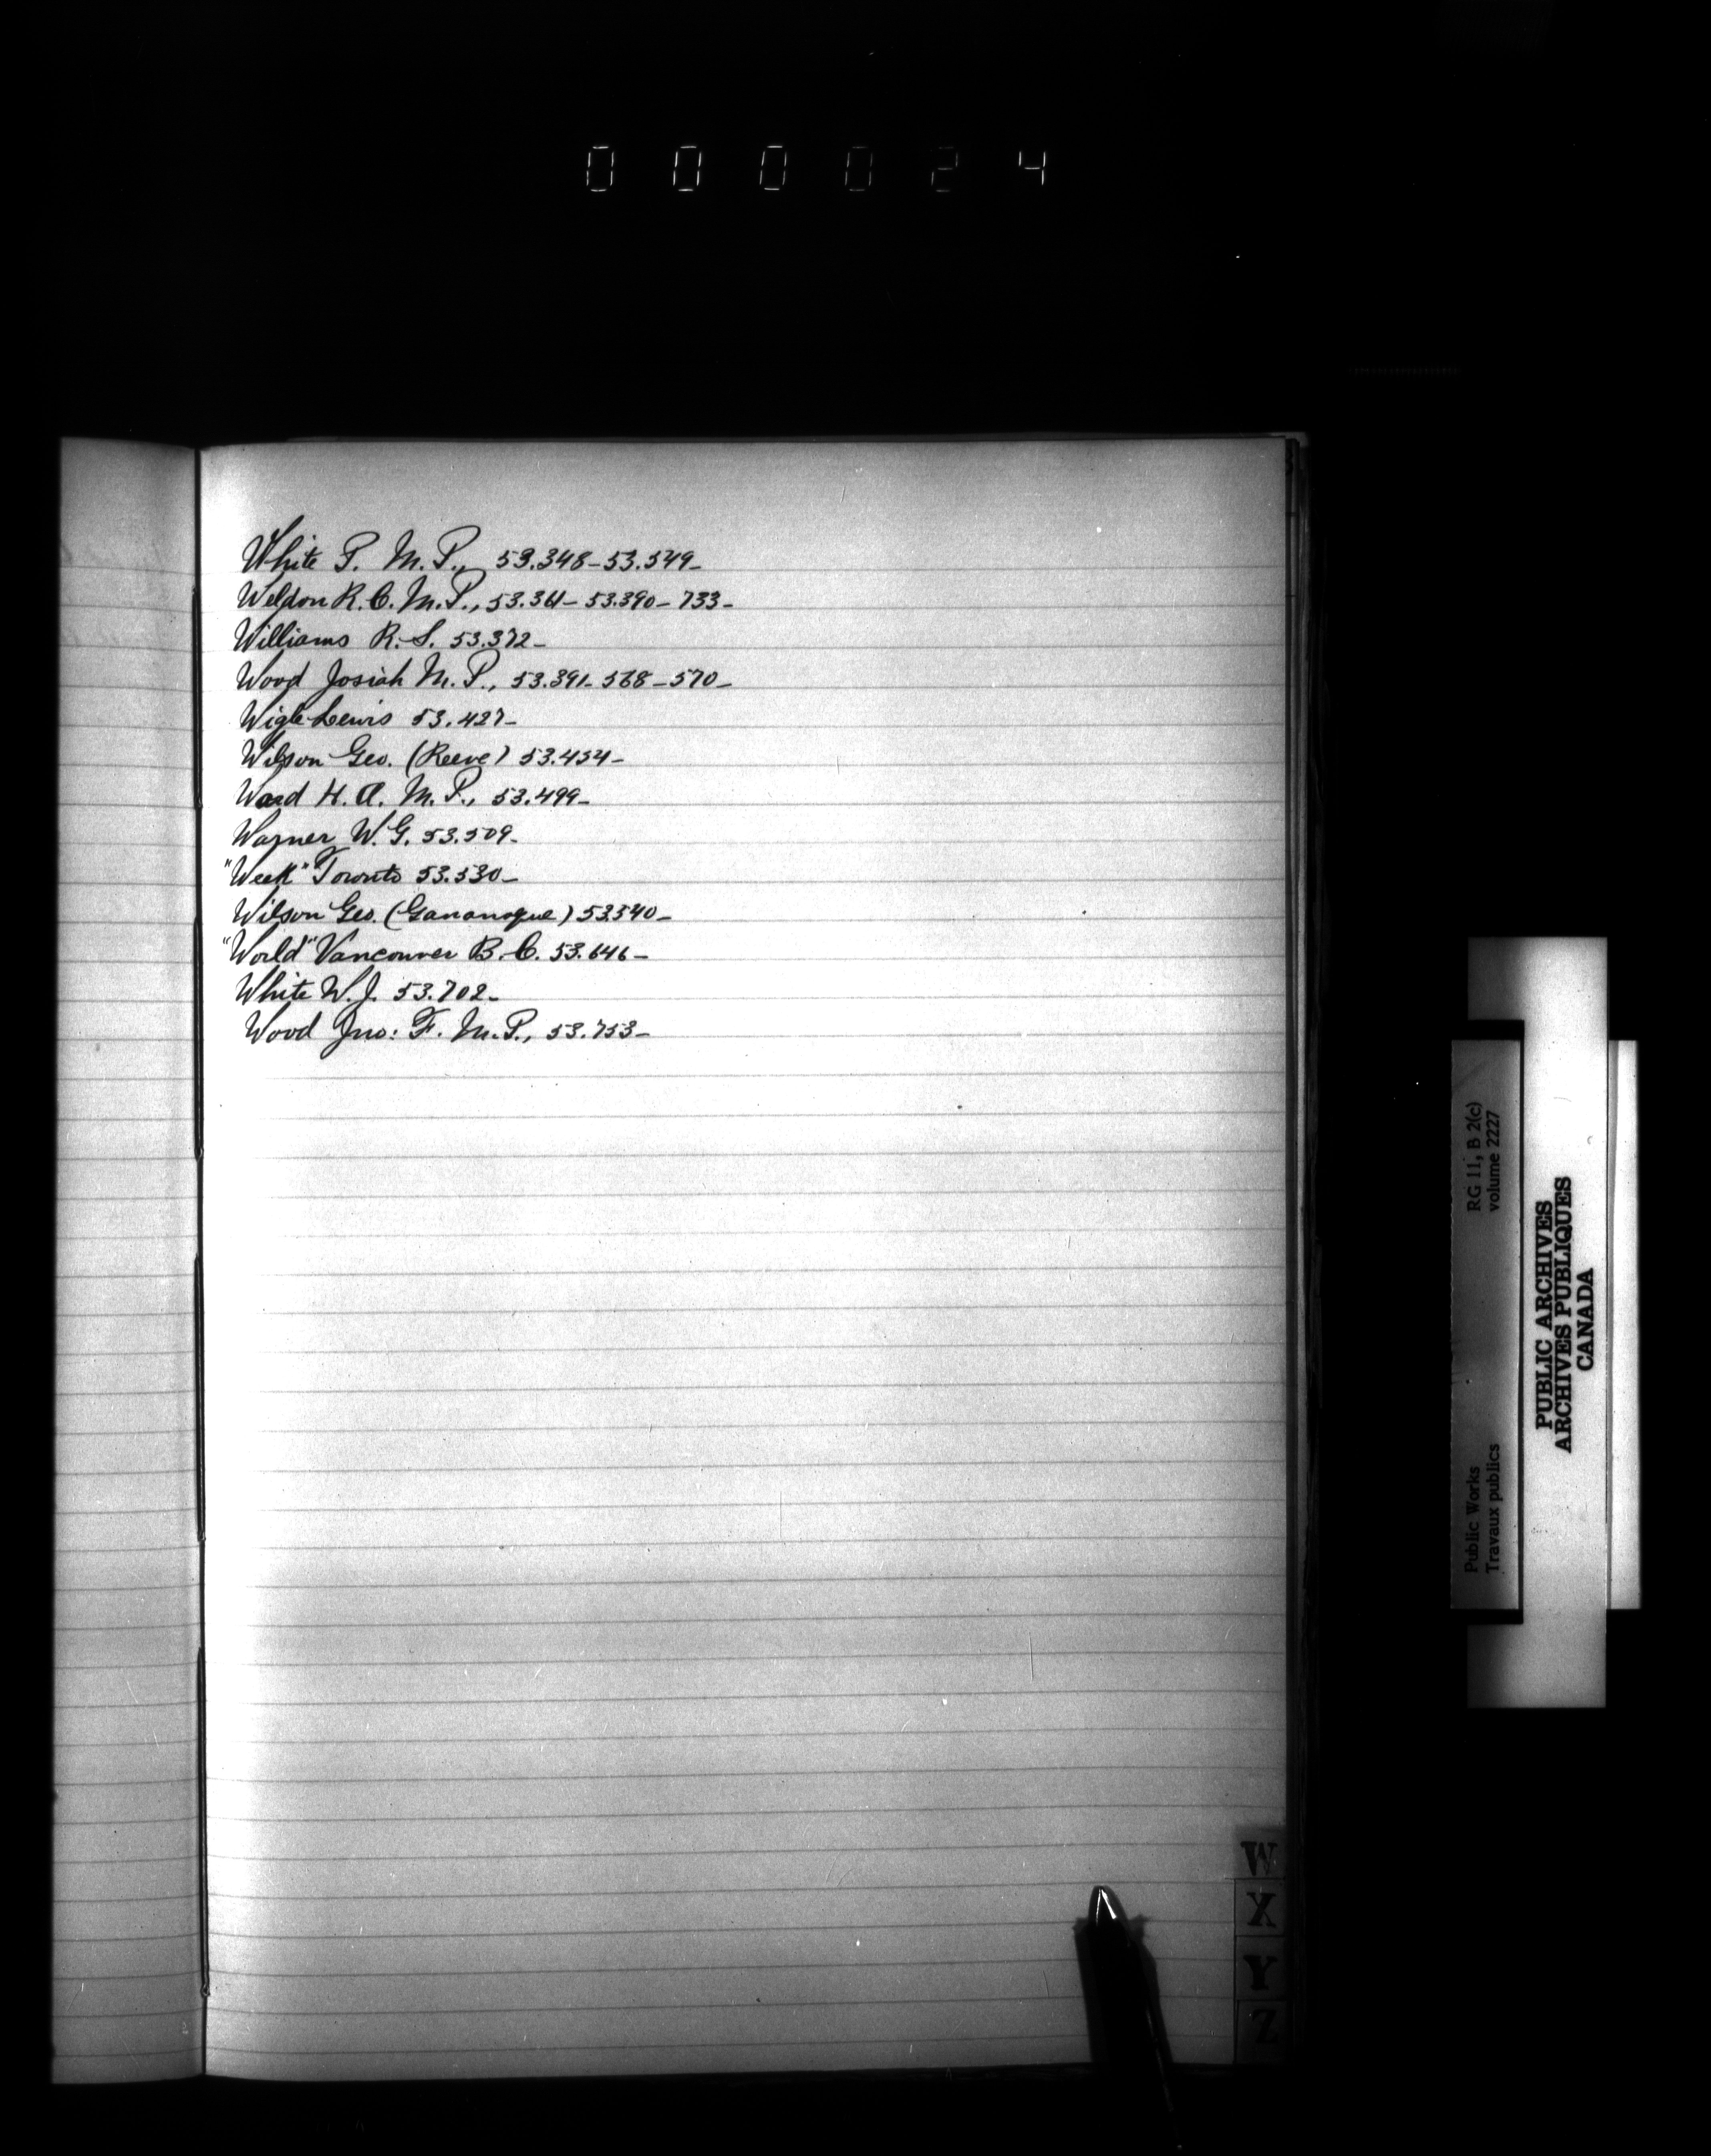 0 0 0 0 2 4
White P. M.P., 53.348-53.549-
Weldon R.C. M.P., 53.361- 53.390- 733-
Williams R.S. 53.372-
Wood Josiah M.P., 53.391- 568-570-
Wigle Lewis 53.427-
Wilson Geo. (Reeve) 53.454-
Ward H.A. M.P., 53.499-
Warner W.G. 53.509-
"Week" Toronto 53.530-
Wilson Geo. (Gananoque) 53540-
"World" Vancouver B.C. 53.646-
White W.J. 53.702-
Wood Jno: F. M.P., 53.753-
W
X
Y
Z
Public Works RG 11, B 2(c)
Travaux publics volume 2227
PUBLIC ARCHIVES
ARCHIVES PUBLIQUES
CANADA